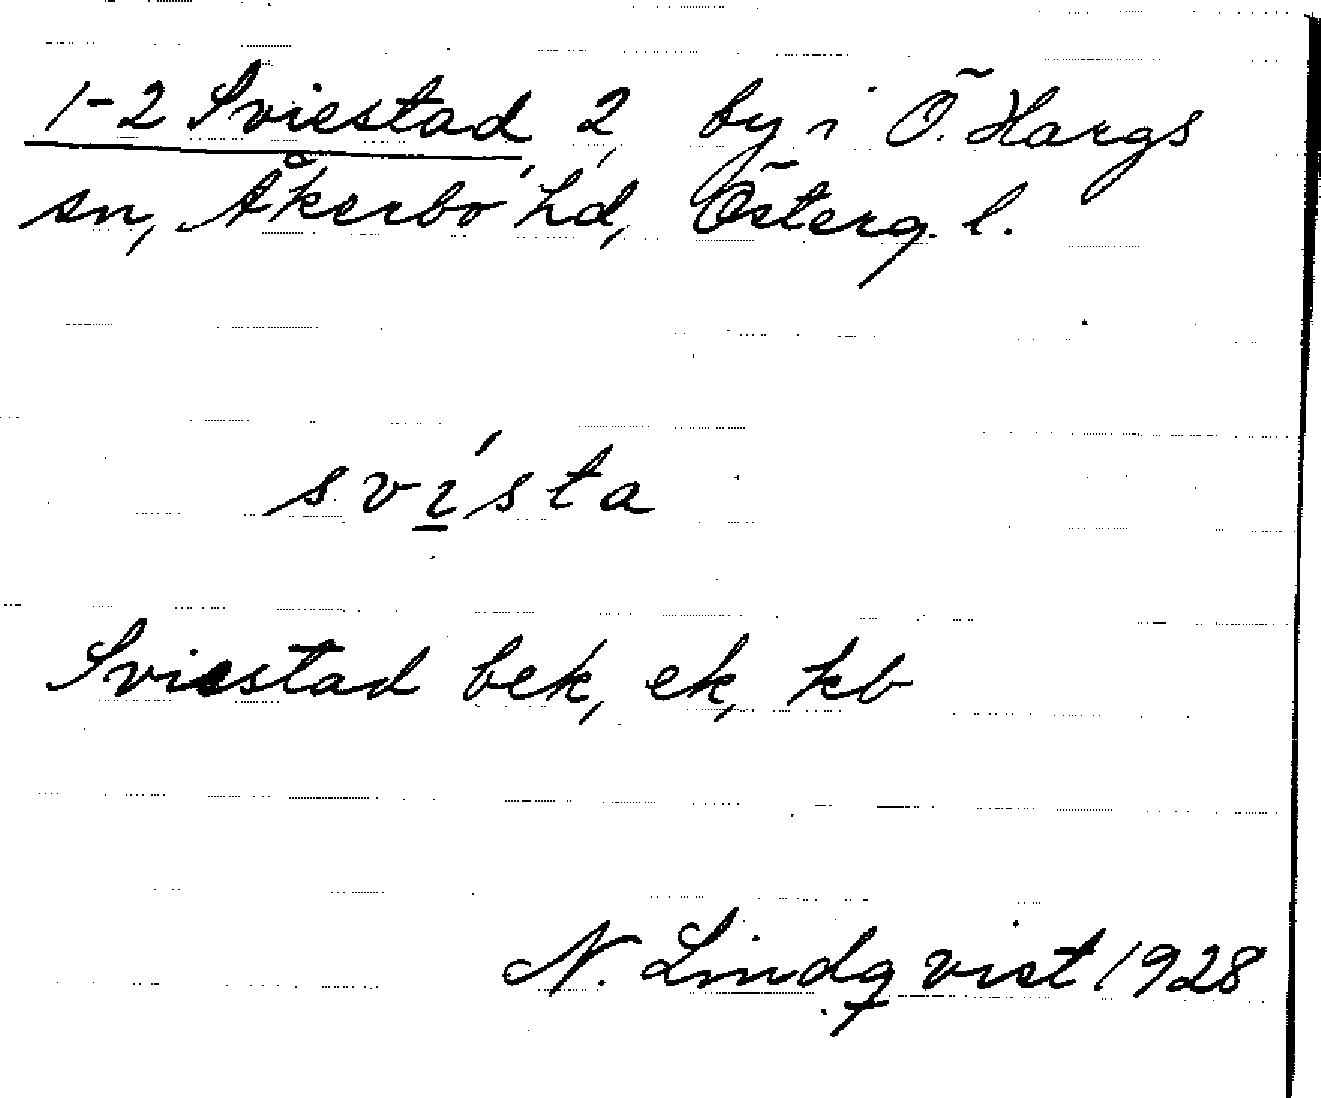 1-2 Sviestad, 2 by i Ö. Hargs
sn, Åkerbo hd, Österg. l.
svı̲́sta
Sviestad bek, ek, kb
N. Lindqvist 1928